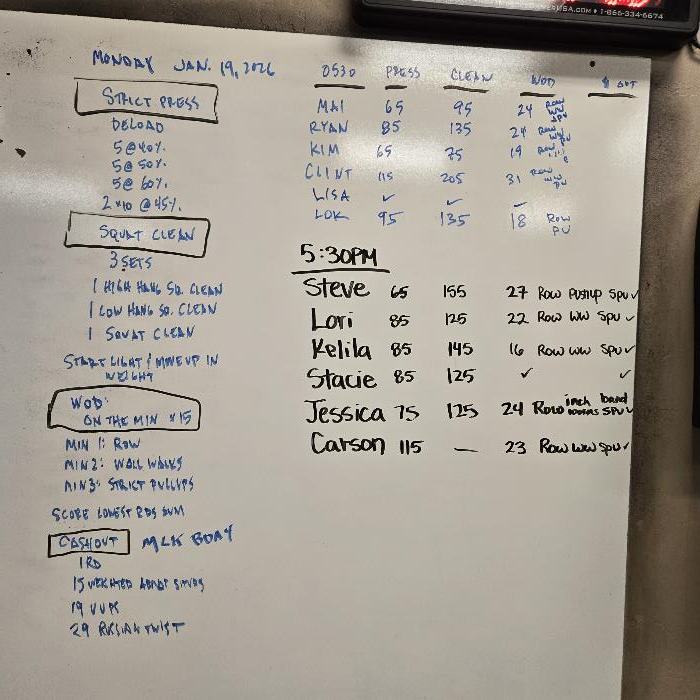 USA.COM • 1-866-334-6674
MONDAY JAN. 19, 2026
STRICT PRESS
DELOAD
5@40%
5@50%
5@60%
2x10@45%
SQUAT CLEAN
3 SETS
1 HIGH HANG SQ. CLEAN
1 LOW HANG SQ. CLEAN
1 SQUAT CLEAN
START LIGHT & MOVE UP IN
WEIGHT
WOD:
ON THE MIN x15
MIN 1: ROW
MIN 2: WALL WALKS
MIN 3: STRICT PULLUPS
SCORE LOWEST RDS SUM
CASHOUT MLK BDAY
1 RD
15 WEIGHTED ABMAT SITUPS
19 VUPS
29 RUSSIAN TWIST
0530 PRESS CLEAN WOD
MAI 65 95 24 ROW WW
RYAN 85 135 24 ROW
KIM 65 75 19 ROW
CLINT 115 205 31 ROW WW PU
LISA ✓ ✓ ✓
LOK 95 135 18 ROW PU
5:30PM
Steve 65 155 27 Row Pushup SPU ✓
Lori 85 125 22 Row WW SPU ✓
Kelila 85 145 16 Row WW SPU ✓
Stacie 85 125 ✓ ✓
Jessica 75 125 24 Row inch worms band SPU ✓
Carson 115 — 23 Row WW SPU ✓